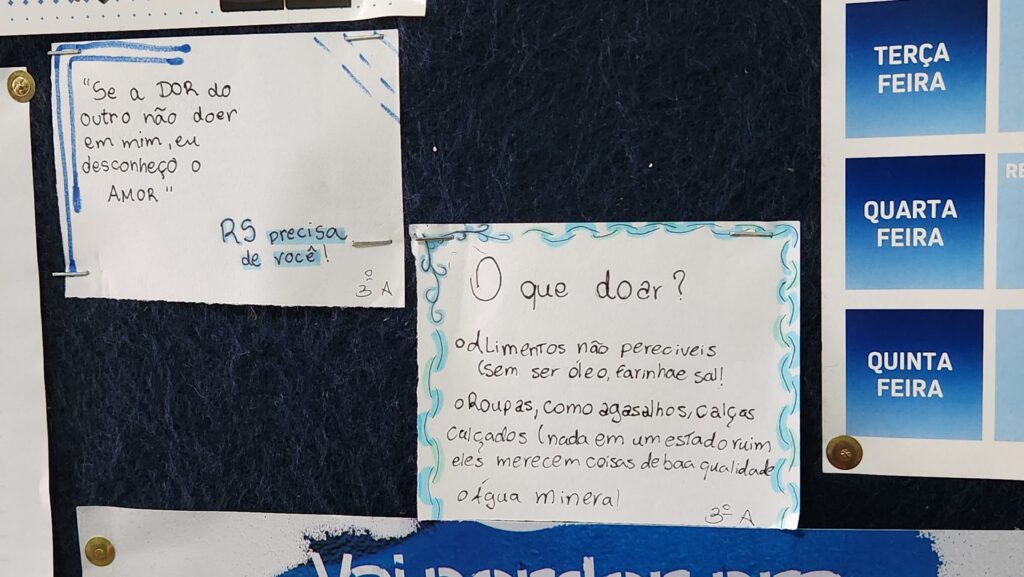 "Se a DOR do
outro não doer
em mim, eu
desconheço o
AMOR"
RS precisa
de você!
3º A
O que doar?
Alimentos não pereciveis
(sem ser óleo, farinha e sal!
Roupas, como agasalhos, calças
calçados (nada em um estado ruim
eles merecem coisas de boa qualidade
Água mineral
3º A
TERÇA
FEIRA
QUARTA
FEIRA
QUINTA
FEIRA
RE
Vai perder